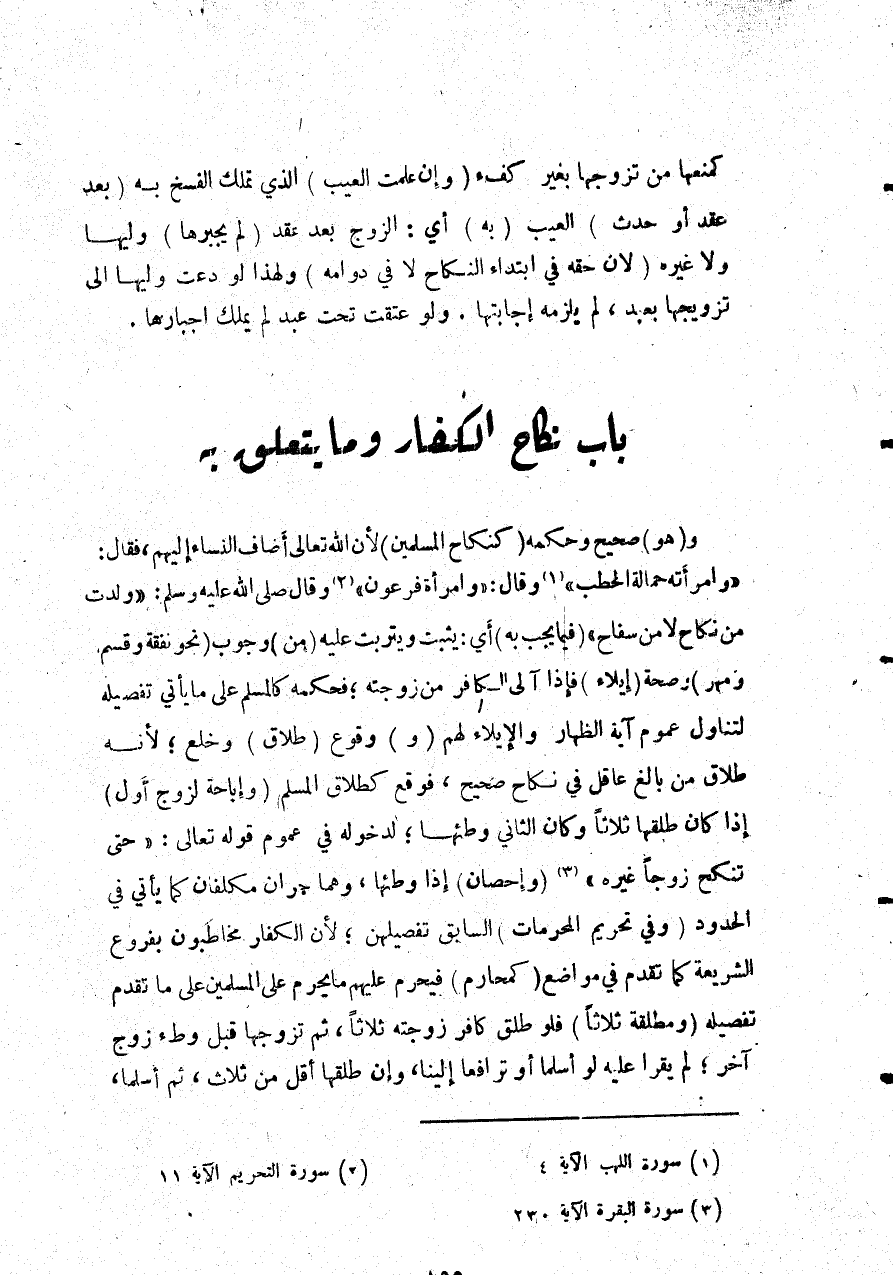 كمنعها من تزوجها بغير كفء ( وإن علمت العيب ) الذي تملك الفسخ بـه ( بعد
عقد أو حدث ) العيب ( به ) أي : الزوج بعد عقد ( لم يجبرها ) وليهـا
ولا غيره ( لان حقه في ابتداء النكاح لا في دوامه ) ولهذا لو دعت وليهـا الى
تزويجها بعبد ، لم يلزمه إجابتها . ولو عتقت تحت عبد لم يملك اجبارها .
باب نكاح الكفار وما يتعلق به
و ( هو ) صحيح وحكمه ( كنكاح المسلمين ) لأن الله تعالى أضاف النساء إليهم ، فقال :
«وامرأته حمالة الحطب» (١) وقال : «وامرأة فرعون» (٢) وقال صلى الله عليه وسلم : «ولدت
من نكاح لا من سفاح» ( فيما يجب به ) أي : يثبت ويترتب عليه ( من ) وجوب ( نحو نفقة وقسم
ومهر ) وصحة ( إيلاء ) فإذا آلى الكافر من زوجته ؛ فحكمه كالمسلم على ما يأتي تفصيله
لتناول عموم آية الظهار والإيلاء لهم ( و ) وقوع ( طلاق ) وخلع ؛ لأنـه
طلاق من بالغ عاقل في نكاح صحيح ، فوقع كطلاق المسلم ( وإباحة لزوج أول )
إذا كان طلقها ثلاثاً وكان الثاني وطئهـا ؛ لدخوله في عموم قوله تعالى : « حتى
تنكح زوجاً غيره » (٣) ( وإحصان ) إذا وطئها ، وهما حران مكلفان كما يأتي في
الحدود ( وفي تحريم المحرمات ) السابق تفصيلهن ؛ لأن الكفار مخاطبون بفروع
الشريعة كما تقدم في مواضع ( كمحارم ) فيحرم عليهم ما يحرم على المسلمين على ما تقدم
تفصيله ( ومطلقة ثلاثاً ) فلو طلق كافر زوجته ثلاثاً ، ثم تزوجها قبل وطء زوج
آخر ؛ لم يقرا عليه لو أسلما أو ترافعا إلينا ، وإن طلقها أقل من ثلاث ، ثم أسلما ،
(١) سورة اللهب الآية ٤
(٢) سورة التحريم الآية ١١
(٣) سورة البقرة الآية ٢٣٠